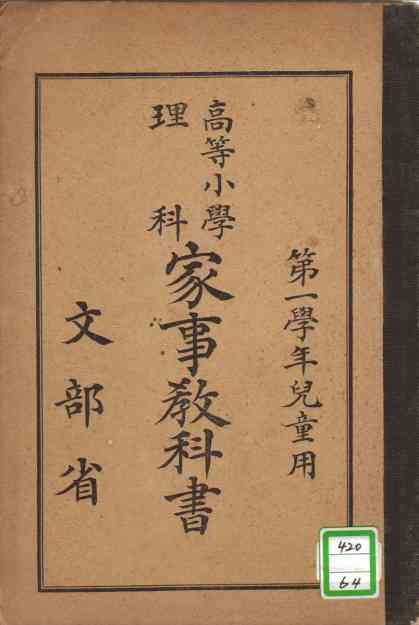 第一學年兒童用
高等小學
理科
家事教科書
文部省
420
64